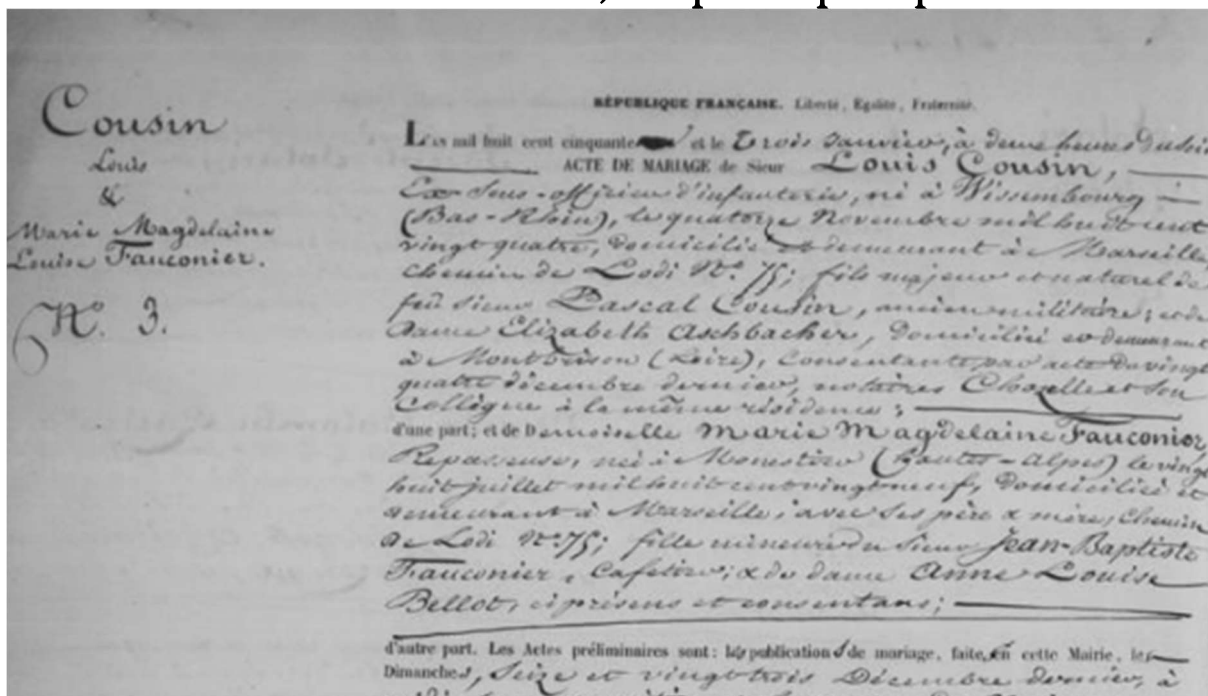 Cousin
Louis
&
Marie Magdelaine
Louise Fauconier.
N.° 3.
RÉPUBLIQUE FRANÇAISE. Liberté, Égalité, Fraternité.
L'an mil huit cent cinquante et le Trois Janvier, à deux heures du soir
ACTE DE MARIAGE de Sieur Louis Cousin,
Ex Sous-officier d'infanterie, né à Wissembourg
(Bas-Rhin), le quatorze Novembre mil huit cent
vingt quatre, domicilié et demeurant à Marseille,
chemin de Lodi N.° 75; fils majeur et naturel de
feu sieur Pascal Cousin, ancien militaire; et de
dame Elizabeth Aschbacher, domicilié et demeurant
à Montbrison (Loire), consentante par acte du vingt
quatre décembre dernier, notaires Chazelle et son
Collègue à la même résidence;
d'une part; et de Demoiselle Marie Magdelaine Fauconier,
Repasseuse, née à Monestier (Hautes-Alpes) le vingt
huit juillet mil huit cent vingt neuf, domiciliée et
demeurant à Marseille, avec ses père & mère, Chemin
de Lodi N.° 75; fille mineure du Sieur Jean-Baptiste
Fauconier, Cafetier; & de dame Anne Louise
Bellot, ci présens et consentans;
d'autre part. Les Actes préliminaires sont: les publications de mariage, faites en cette Mairie, les
Dimanches, Seize et vingt trois Décembre dernier, à